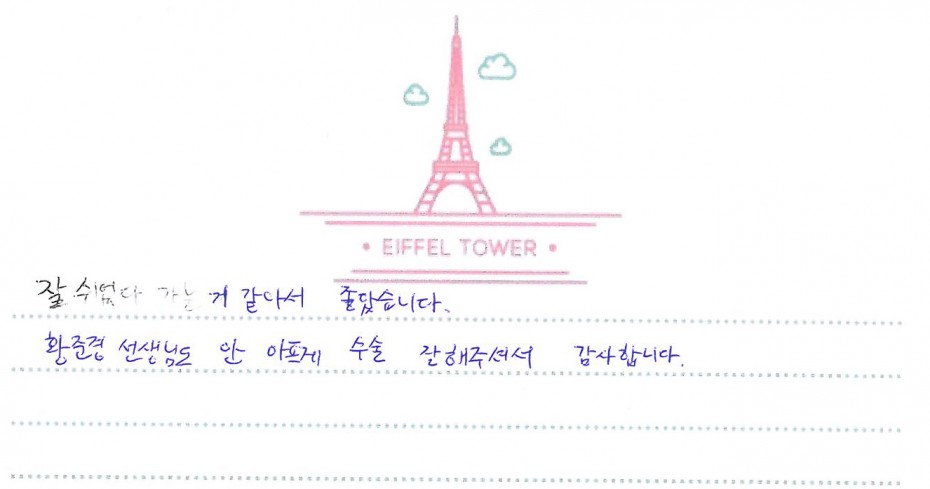 • EIFFEL TOWER •
잘 쉬었다 가는 거 같아서 좋았습니다.
황준경 선생님도 안 아프게 수술 잘해주셔서 감사합니다.